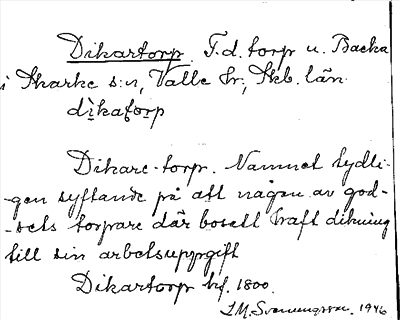 Dikartorp. F.d. torp u. Backa
i Skarke s:n, Valle hr, Skb. län.
dìkatorp
Dikare-torp. Namnet tydli-
-gen syftande på att någon av god-
-sets torpare där bosatt haft dikning
till sin arbetsuppgift
Dikartorp hf. 1800.
J.M. Svenungsson. 1946